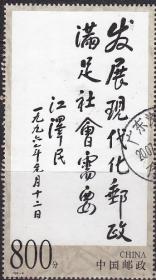 发展现代化郵政
满足社會需要
江泽民
一九九六年元月十二日
800分
CHINA
中国邮政
广东
20.0